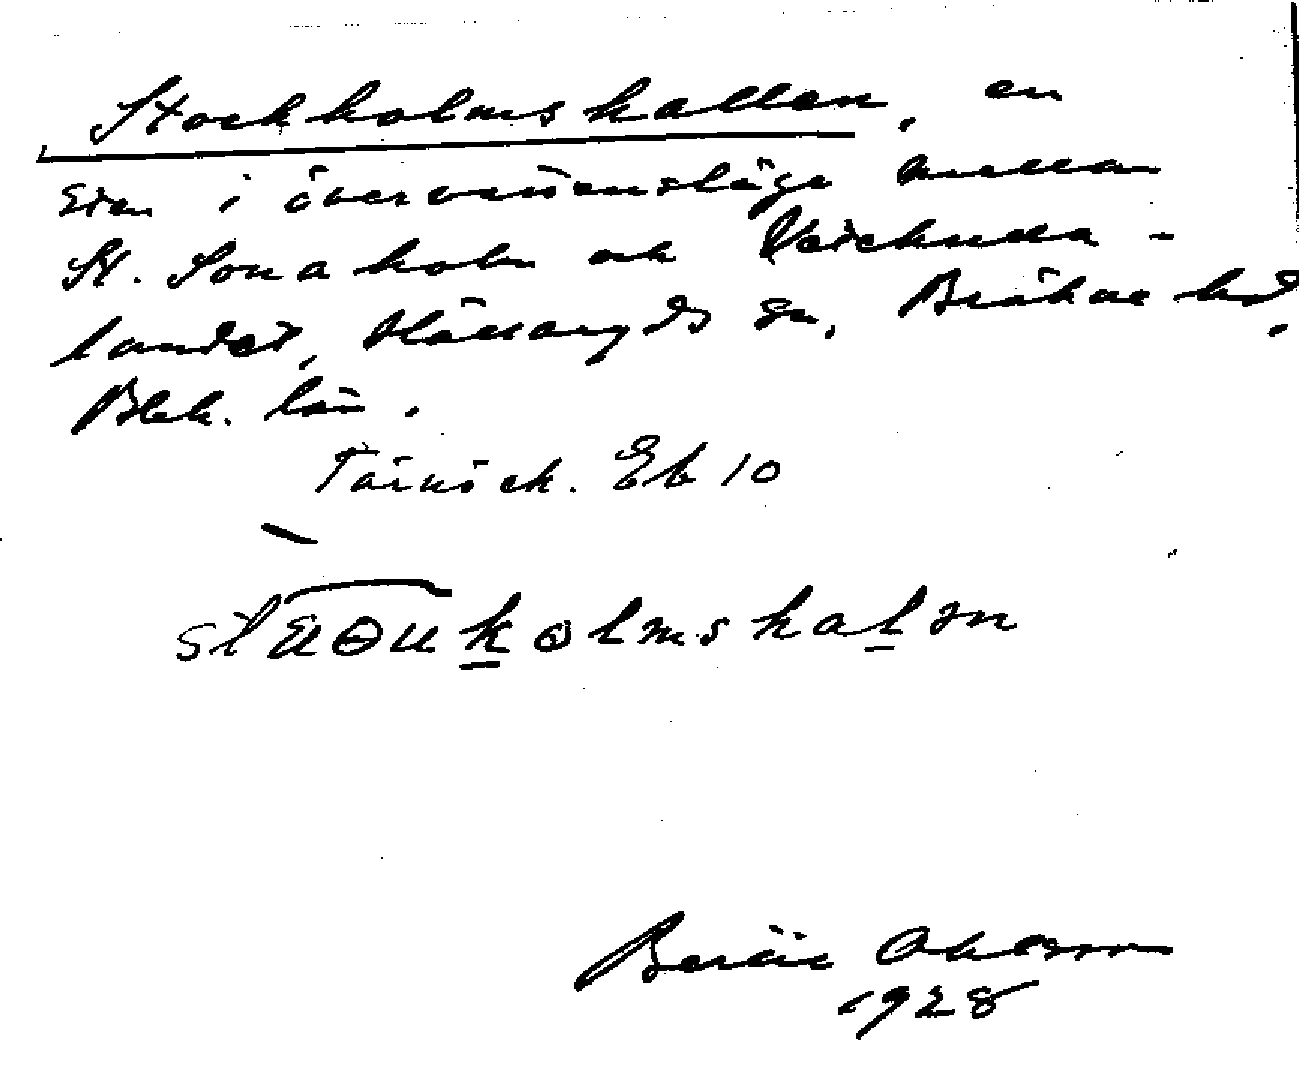 Stockholmshallen, en
sten i övervattensläge mellan
St. Sonaholm och Vaieknella -
landet, Hällaryds sn, Bräkne hd,
Blek. län.
Tärnö ek. Eb 10
kholmshalən
Bertil Ohlsson
1928